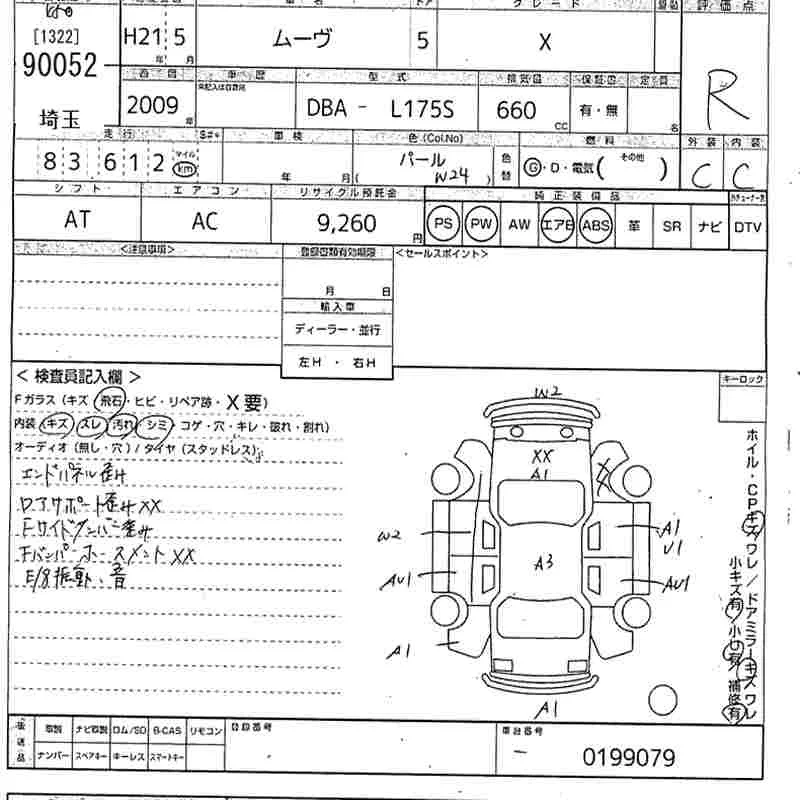 評 価 点
[1322]
90052
埼玉
H21 5
年 月
ムーヴ
5
X
R
車 歴
型 式
排 気 量
定 員
2009
年
DBA - L175S
660
CC
有・無
名
走 行
車 検
色 (Col.No)
燃 料
外 装
内 装
83 612
マイル
km
年 月
パール
( W24 )
色替
G・D・電気( その他 )
C
C
シ フ ト
エ ア コ ン
リサイクル預託金
純 正 装 備 品
AT
AC
9,260
円
PS
PW
AW
エアB
ABS
革
SR
ナビ
DTV
<注意事項>
登録書類有効期限
<セールスポイント>
月 日
輸入車
ディーラー・並行
左H ・ 右H
< 検査員記入欄 >
キーロック
Fガラス (キズ・飛石・ヒビ・リペア跡・X要)
内装 (キズ・スレ・汚れ・シミ・コゲ・穴・キレ・破れ・割れ)
オーディオ (無し・穴) / タイヤ (スタッドレス)
エンドパネル歪み
ロアサポート歪み XX
Fサイドメンバー歪み
FバンパーホースメントXX
E/g振動、音
W2
XX
A1
XX
W2
A1
U1
A3
AU1
AU1
A1
A1
ホイル・CPキズワレ/ドアミラーキズワレ
小キズ有 小U有 補修有
後送品
ナビ取説
ロム/SD
B-CAS
リモコン
登録番号
車台番号
ナンバー
スペアキー
キーレス
スマートキー
-
0199079